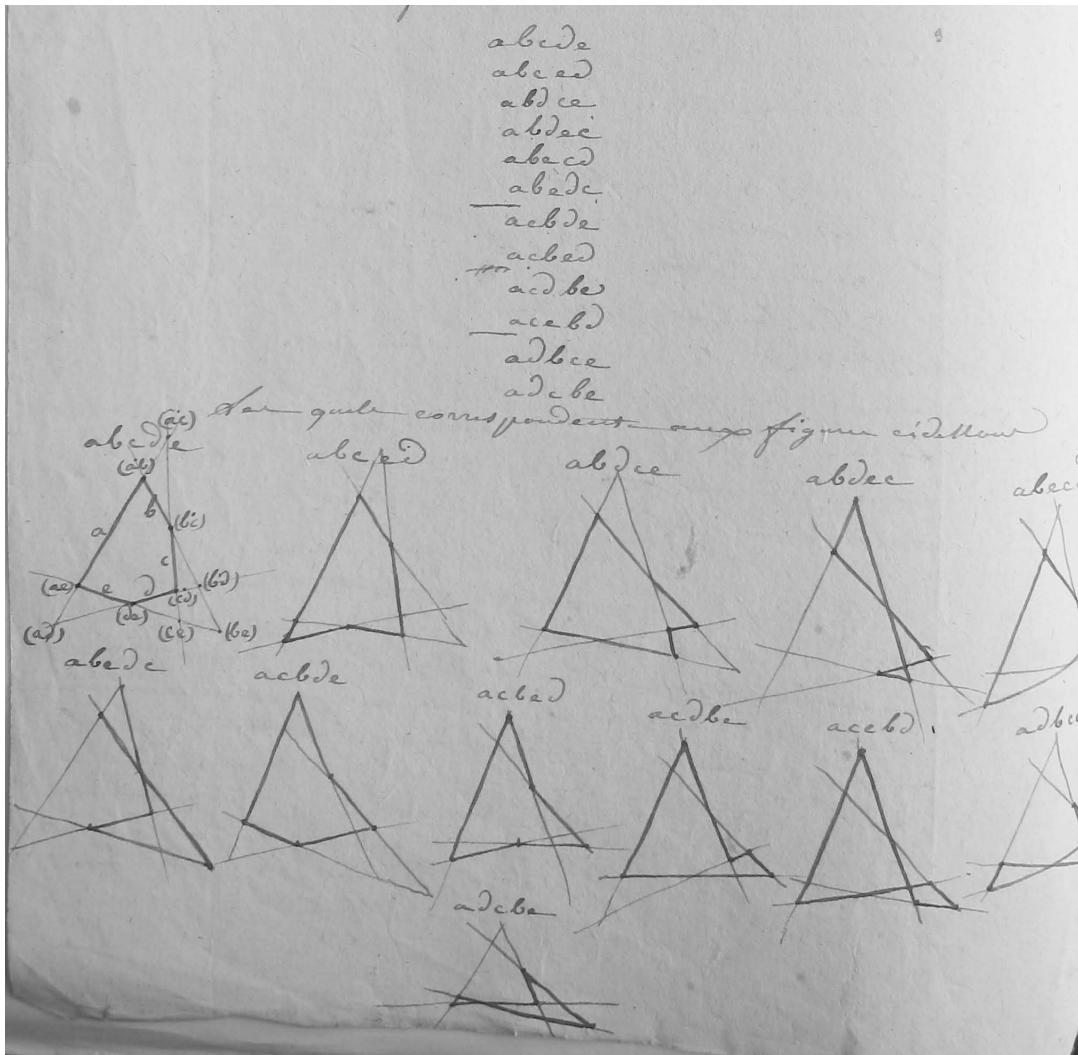 abcde
abced
abdce
abdec
abecd
abedc
acbde
acbed
acdbe
acebd
adbce
adcbe
correspondent aux figures cidessous
(ac)
abcde
abced
abdce
abdec
abec
(ab)
a
b
(bc)
c
(ae)
e
d
(cd)
(bd)
(de)
(ad)
(ce)
(be)
abedc
acbde
acbed
acdbe
acebd
adbce
adcbe